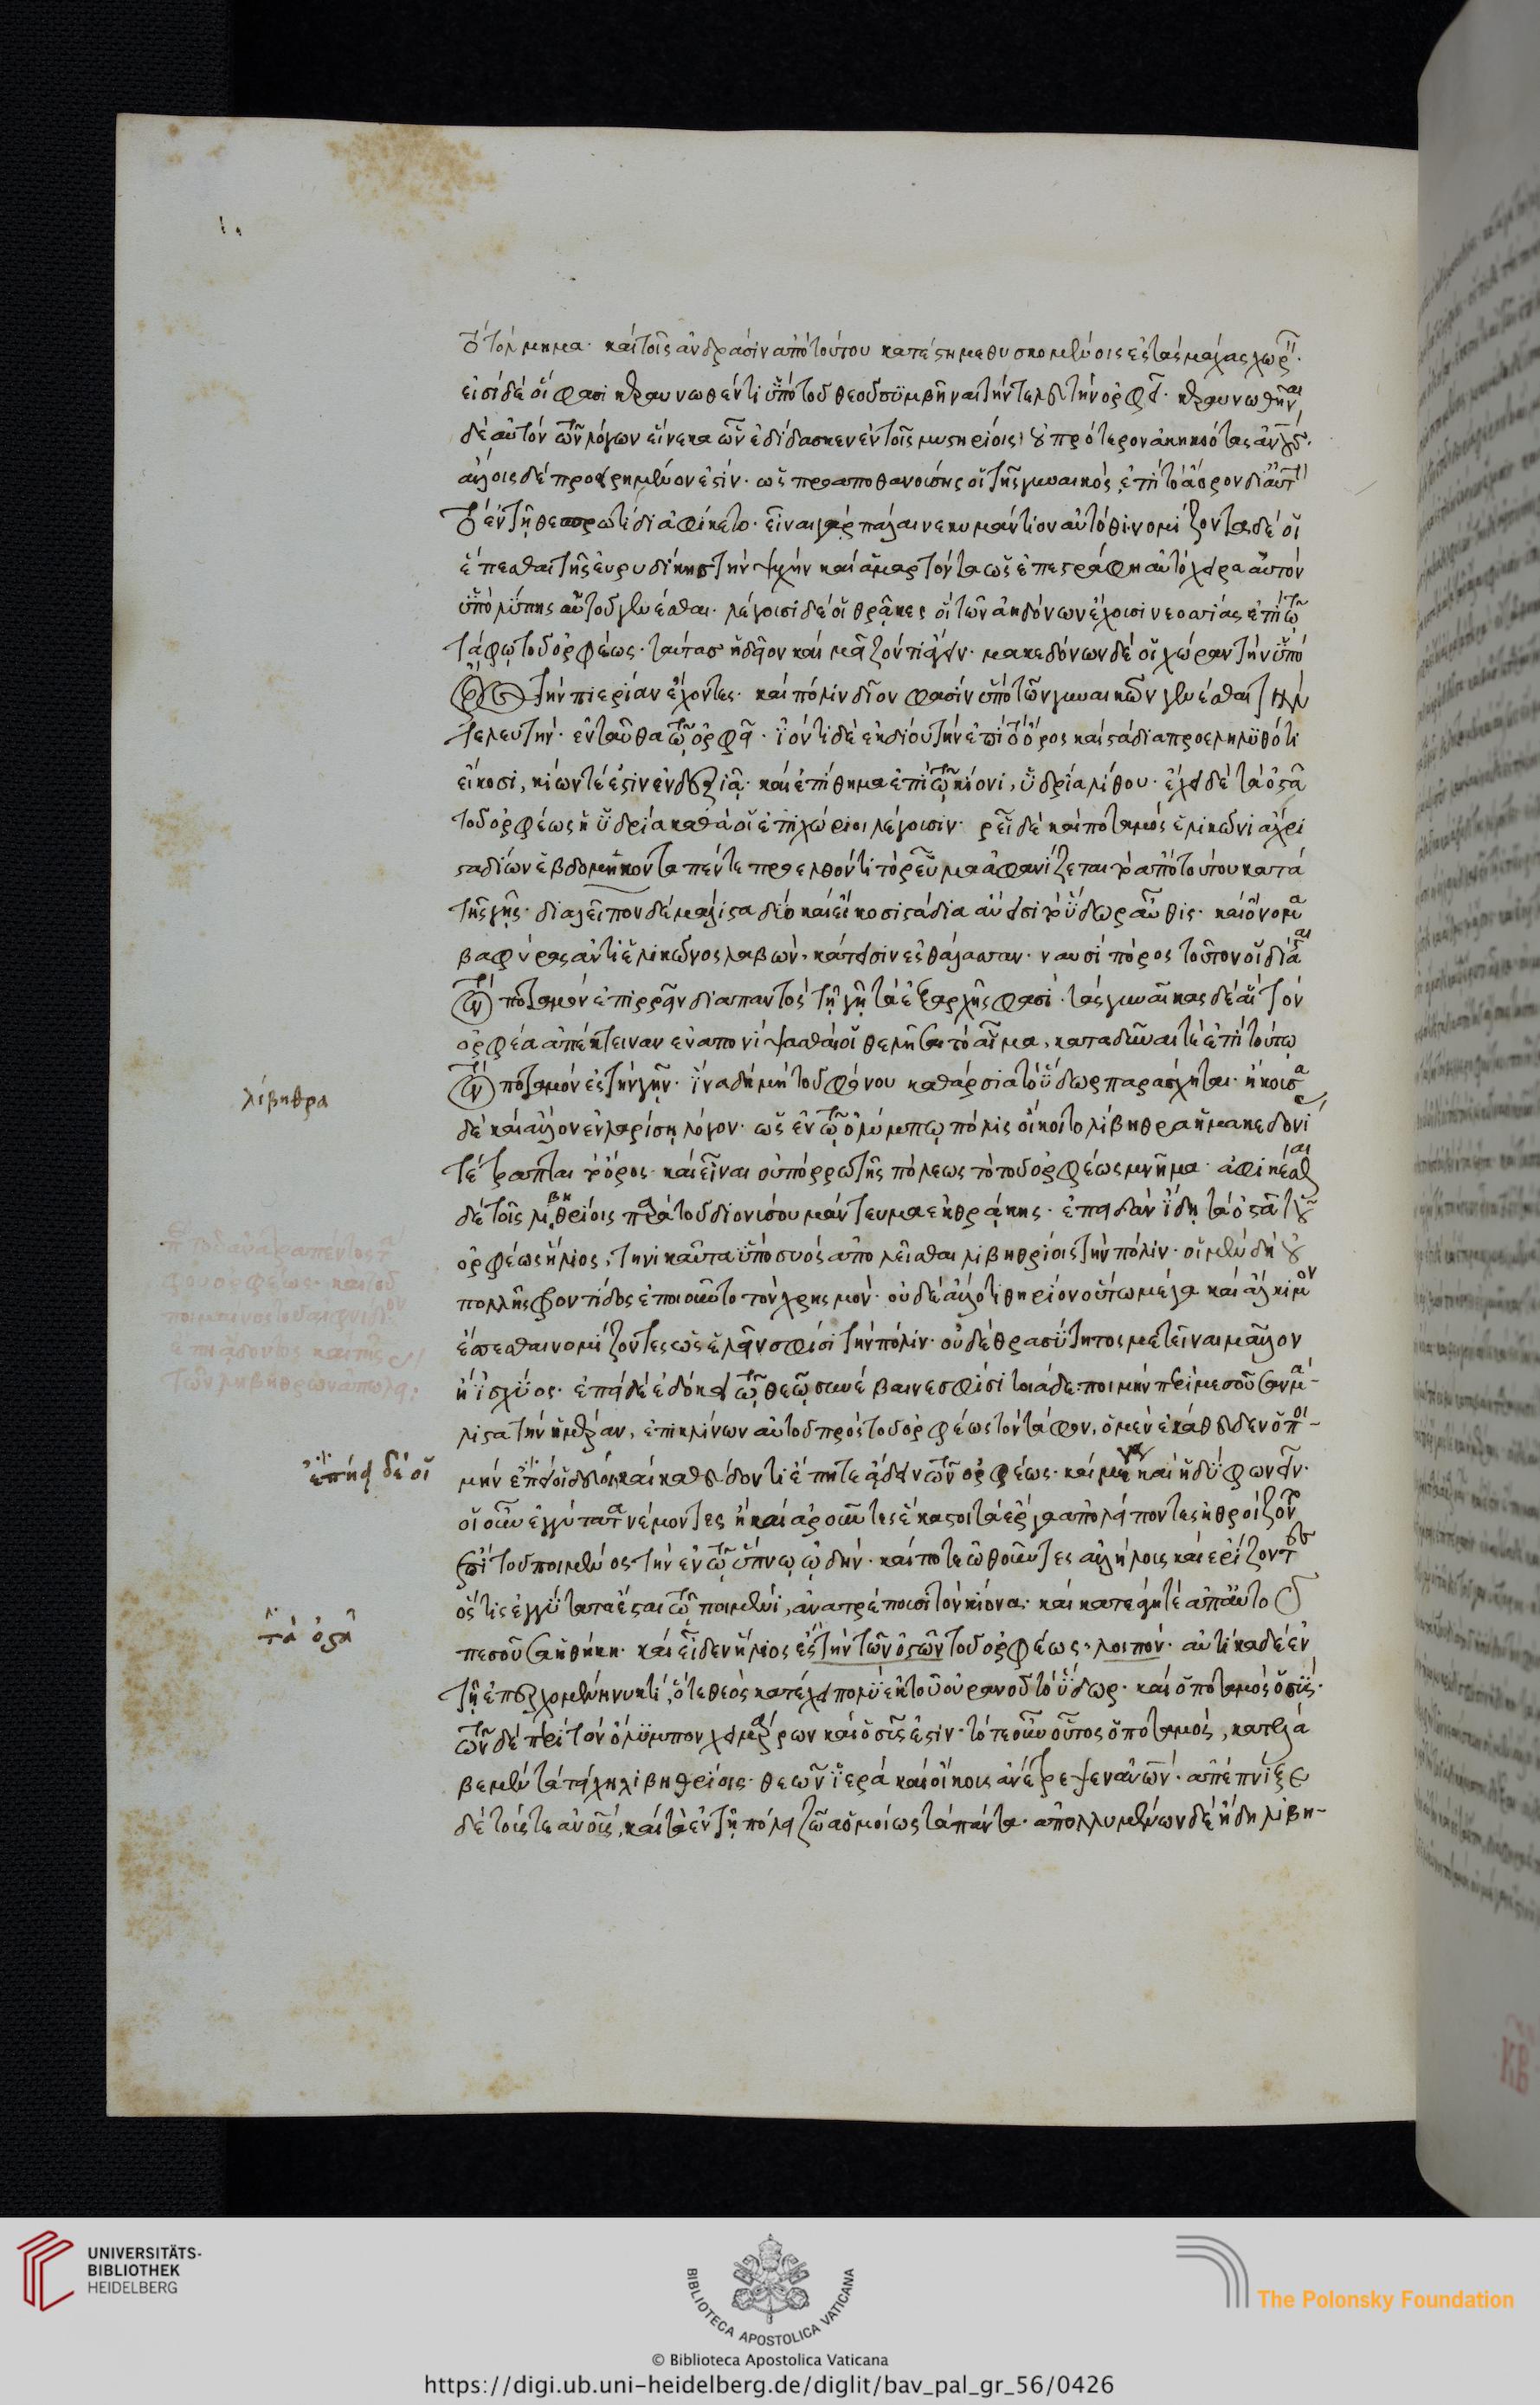 τὸ τόλμημα· καὶ τοῖς ἀνδράσιν ἀπὸ τούτου κατέστη μεθυσκομένοις ἐς τὰς μάχας χωρεῖν·
εἰσὶ δὲ οἵ φασι κεραυνωθέντι ὑπὸ τοῦ θεοῦ συμβῆναι τὴν τελευτὴν ὀρφεῖ· κεραυνωθῆναι
δὲ αὐτὸν τῶν λόγων εἵνεκα ὧν ἐδίδασκεν ἐν τοῖς μυστηρίοις οὐ πρότερον ἀκηκοότας ἀνθρώπους·
ἄλλοις δὲ προειρημένον ἐστίν· ὡς προαποθανούσης οἱ τῆς γυναικὸς ἐπὶ τὸ ἄορνον δι' αὐτὴν
τὸ ἐν τῇ θεσπρωτίδι ἀφίκετο· εἶναι γὰρ πάλαι νεκυμαντίον αὐτόθι· νομίζοντα δέ οἱ
ἕπεσθαι τῆς εὐρυδίκης τὴν ψυχὴν καὶ ἁμαρτόντα ὡς ἐπεστράφη αὐτόχειρα αὑτὸν
ὑπὸ λύπης αὑτοῦ γενέσθαι· λέγουσι δὲ οἱ θρᾷκες οἳ τῶν ἀηδόνων ἔχουσι νεοσσίας ἐπὶ τῷ
τάφῳ τοῦ ὀρφέως· ταύτας ἥδιον καὶ μεῖζόν τι ᾄδειν· μακεδόνων δὲ οἱ χώραν τὴν ὑπὸ
τὴν πιερίαν ἔχοντες· καὶ πόλιν δῖον φασὶν ὑπὸ τῶν γυναικῶν γενέσθαι τὴν
τελευτὴν· ἐνταῦθα τῷ ὀρφεῖ· ἰόντι δὲ ἐκ δίου τὴν ἐπὶ τὸ ὄρος καὶ στάδια προεληλυθότι
εἴκοσι, κίων τέ ἐστιν ἐν δεξιᾷ· καὶ ἐπίθημα ἐπὶ τῷ κίονι, ὑδρία λίθου· ἔχει δὲ τὰ ὀστᾶ
τοῦ ὀρφέως ἡ ὑδρία καθὰ οἱ ἐπιχώριοι λέγουσιν· ῥεῖ δὲ καὶ ποταμὸς ἑλικών· ἄχρι
σταδίων ἑβδομήκοντα πέντε προελθόντι τὸ ῥεῦμα ἀφανίζεται τὸ ἀπὸ τούτου κατὰ
τῆς γῆς· διαλεῖπον δὲ μάλιστα δύο καὶ εἴκοσι στάδια ἄνεισι τὸ ὕδωρ αὖθις· καὶ ὄνομα
βαφύρας ἀντὶ ἑλικῶνος λαβὼν· κάτεισιν ἐς θάλασσαν· ναυσίπορος τοῦτον οἱ διασταὶ
τὸν ποταμὸν ἐπιρρεῖν διαπαντὸς τῇ γῇ τὰ ἐξ ἀρχῆς φασί· τὰς γυναῖκας δὲ αἳ τὸν
ὀρφέα ἀπέκτειναν ἐναπονίψασθαί οἱ θελῆσαι τὸ αἷμα, καταδῦναί τε ἐπὶ τούτῳ
τὸν ποταμὸν ἐς τὴν γῆν· ἵνα δὴ μὴ τοῦ φόνου καθάρσια τὸ ὕδωρ παράσχηται· ἤκουσα
λίβηθρα
δὲ καὶ ἄλλον ἐν λαρίσῃ λόγον· ὡς ἐν τῷ ὀλύμπῳ πόλις οἰκοῖτο λίβηθρα ᾗ μακεδονί
τέτραπται τὸ ὄρος· καὶ εἶναι οὐ πόρρω τῆς πόλεως τὸ τοῦ ὀρφέως μνῆμα· ἀφικέσθαι
δὲ τοῖς λιβηθρίοις παρὰ τοῦ διονύσου μάντευμα ἐκ θρᾴκης· ἐπειδὰν ἴδῃ τὰ ὀστᾶ τοῦ
ὀρφέως ἥλιος, τηνικαῦτα ὑπὸ συὸς ἀπολεῖσθαι λιβηθρίοις τὴν πόλιν· οἱ μὲν δὴ οὐ
πολλῆς φροντίδος ἐποιοῦντο τὸν χρησμόν· οὐδὲ ἄλλο τι θηρίον οὕτω μέγα καὶ ἄλκιμον
ἔσεσθαι νομίζοντες ὡς ἑλεῖν σφίσι τὴν πόλιν· συῒ δὲ θρασύτητος μετεῖναι μᾶλλον
ἢ ἰσχύος· ἐπεὶ δὲ ἐδόκει τῷ θεῷ συνέβαινε σφίσι τοιάδε· ποιμὴν περὶ μεσοῦσαν μά-
λιστα τὴν ἡμέραν, ἐπικλίνων αὑτὸν πρὸς τοῦ ὀρφέως τὸν τάφον, ὁ μὲν ἐκάθευδεν ὁ ποι-
ἐπῄει δέ οἱ
μὴν ἐπῄει δέ οἱ καὶ καθεύδοντι ἔπη τε ᾄδειν τῶν ὀρφέως· καὶ μέγα καὶ ἡδὺ φωνεῖν·
οἱ οὖν ἐγγύτατα νέμοντες ἢ καὶ ἀροῦντες ἕκαστοι τὰ ἔργα ἀπολείποντες ἠθροίζοντο
ἐπὶ τοῦ ποιμένος τὴν ἐν τῷ ὕπνῳ ᾠδήν· καί ποτε ὠθοῦντες ἀλλήλους καὶ ἐρίζοντες
ὅστις ἐγγύτατα ἔσται τῷ ποιμένι, ἀνατρέπουσι τὸν κίονα· καὶ κατεάγη τε ἀπ' αὐτοῦ
τὰ ὀστᾶ
πεσοῦσα ἡ θήκη· καὶ εἶδεν ἥλιος ἐς τὴν τῶν ὀστῶν τοῦ ὀρφέως· λοιπόν· αὐτίκα δὲ ἐν
τῇ ἐπερχομένῃ νυκτί, ὅ τε θεὸς κατέχει πολὺ ἐκ τοῦ οὐρανοῦ τὸ ὕδωρ· καὶ ὁ ποταμὸς ὁ σῦς·
τῶν δὲ περὶ τὸν ὄλυμπον χειμάρρων καὶ ὁ σῦς ἐστιν· τότε οὖν οὗτος ὁ ποταμὸς, κατέλα
βε μὲν τὰ τείχη λιβηθρίοις· θεῶν ἱερὰ καὶ οἴκους ἀνέτρεψεν ἀνθρώπων· ἀπέπνιξε
δὲ τούς τε ἀνθρώπους, καὶ τὰ ἐν τῇ πόλει ζῷα ὁμοίως τὰ πάντα· ἀπολλυμένων δὲ ἤδη λιβη-
UNIVERSITÄTS-
BIBLIOTHEK
HEIDELBERG
BIBLIOTECA APOSTOLICA VATICANA
The Polonsky Foundation
© Biblioteca Apostolica Vaticana
https://digi.ub.uni-heidelberg.de/diglit/bav_pal_gr_56/0426